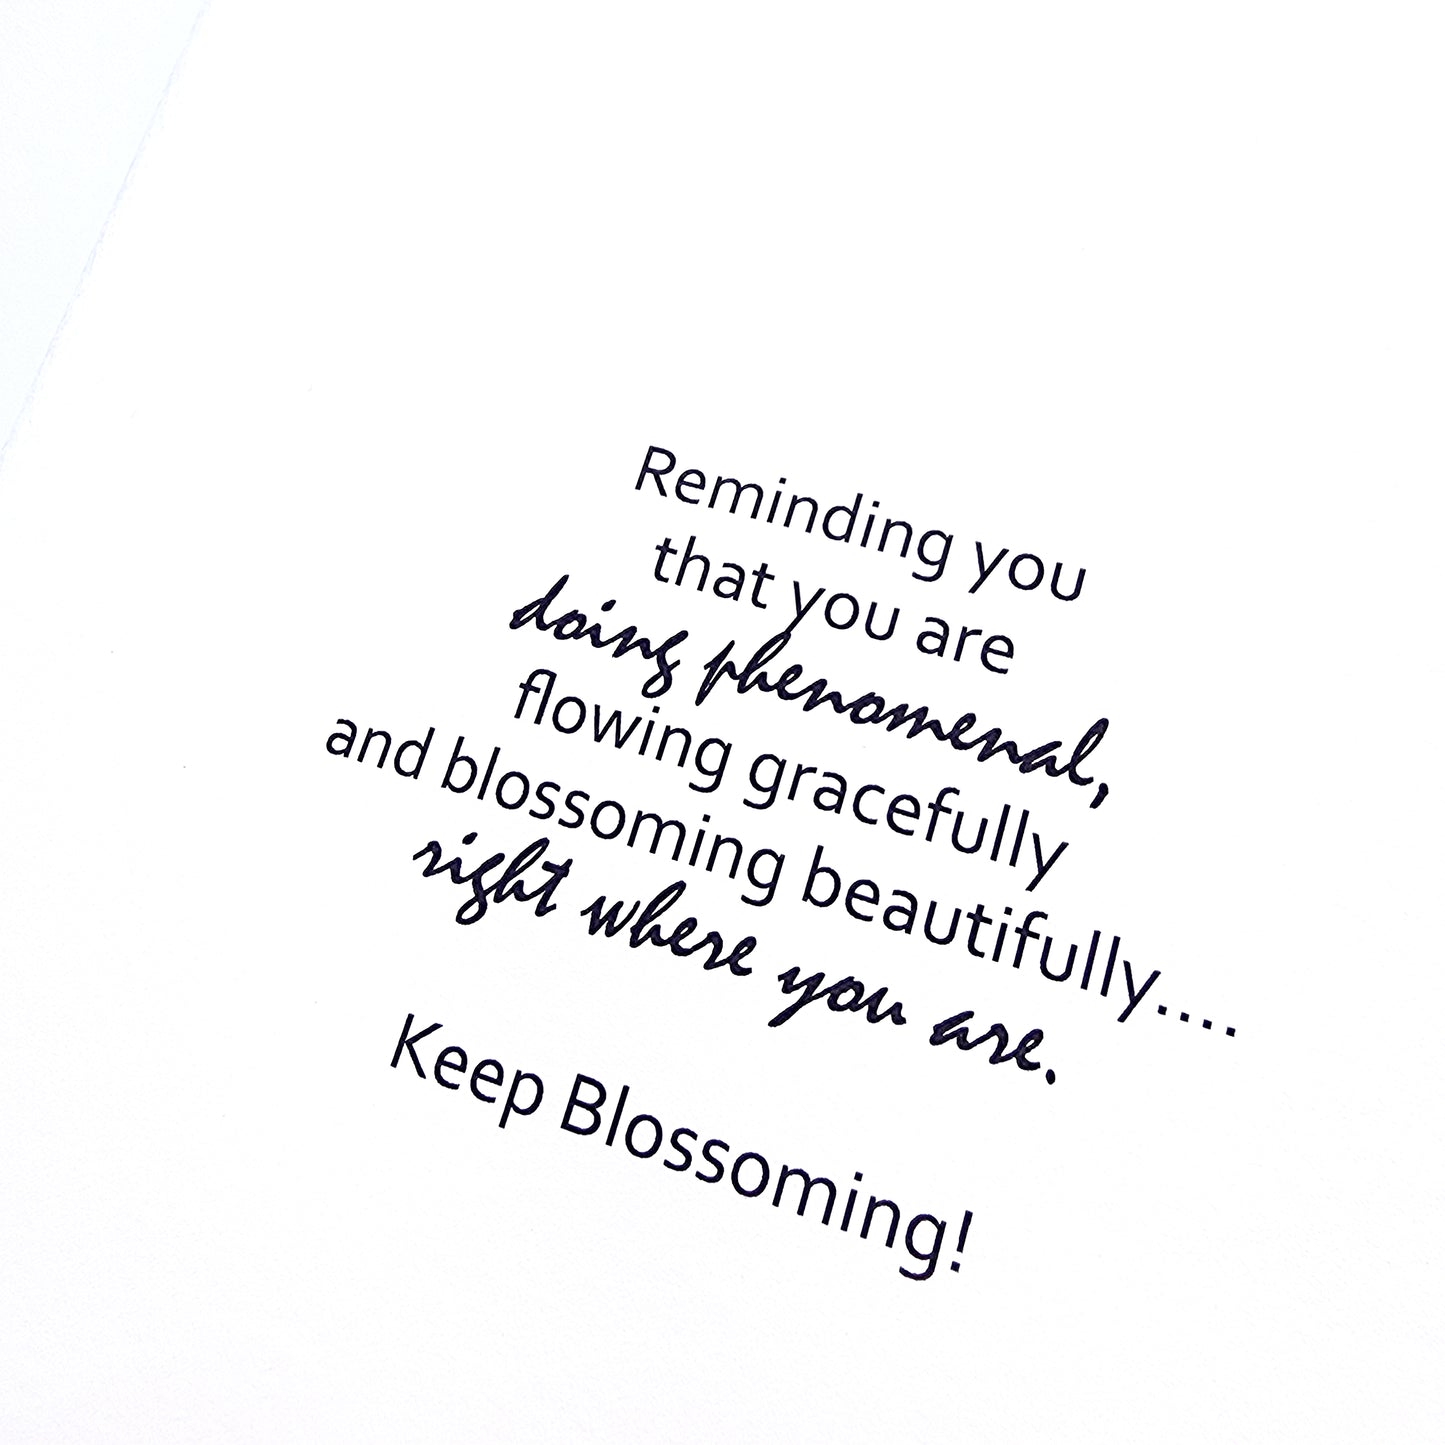 Reminding you
that you are
doing phenomenal,
flowing gracefully
and blossoming beautifully....
right where you are.
Keep Blossoming!